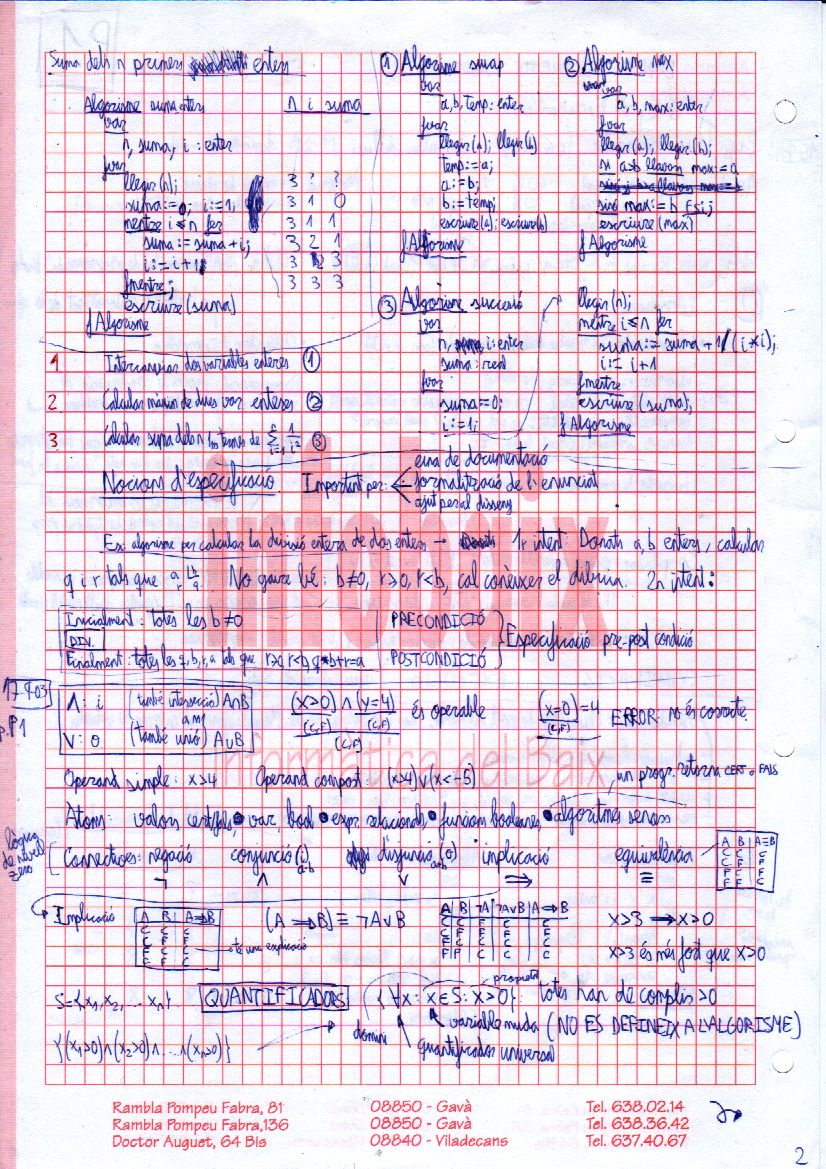 Suma dels n primers enters
Algorisme suma enters
var
n, suma, i : enter
fvar
llegir(n);
suma:=0; i:=1;
mentre i≤n fer
suma := suma + i;
i := i+1
fmentre;
escriure (suma)
fAlgorisme
n i suma
3 ? ?
3 1 0
3 1 1
3 2 1
3 2 3
3 3 3
① Algorisme swap
var
a, b, temp: enter
fvar
llegir(a); llegir(b)
temp:=a;
a:=b;
b:=temp;
escriure(a); escriure(b)
fAlgorisme
② Algorisme max
var
a, b, max: enter
fvar
llegir(a); llegir(b);
si a≥b llavors max:=a
sinó max:=b fsi;
escriure (max)
fAlgorisme
1 Intercanviar dos variables enteres ①
2 Calcular màxim de dues var enteres ②
3 Calcular suma dels n 1rs termes de ∑ i=1 n 1/i² ③
③ Algorisme successió
var
n, i: enter
suma: real
fvar
suma:=0;
i:=1;
llegir(n);
mentre i≤n fer
suma:= suma + 1/(i*i);
i:= i+1
fmentre
escriure (suma);
fAlgorisme
Nocions d'especificació Important per:
eina de documentació
formalització de l'enunciat
ajut per al disseny
Ex: algorisme per calcular la divisió entera de dos enters → 1r intent: Donats a, b enters, calcular
q i r tals que a b r q. No gaire bé: b≠0, r>0, r<b, cal conèixer el dibuix. 2n intent:
Inicialment: totes les b≠0 PRECONDICIÓ
DIV.
Finalment: totes les q, b, r, a tals que r≥0, r<b, q*b+r=a POSTCONDICIÓ
Especificació pre-post condició
17-9-03
p.P1
∧: i (també intersecció) A∩B
∨: o (també unió) A∪B
(x>0) ∧ (y=4) és operable
(C,F) (C,F)
(C,F)
(x=0)=4 ERROR: no és correcte.
(C,F)
Operand simple: x>4 Operand compost: (x>4)∨(x<-5)
un progr. retorna CERT o FALS
Àtoms: valors cert/fals, var. bool expr. relacionals, funcions booleanes, algoritmes sencers
lògica de nivell zero
Connectives: negació conjunció (i) disjunció (o) implicació equivalència
¬ ∧ ∨ ⇒ ≡
A B A≡B
C C C
C F F
F C F
F F C
Implicació
A B A⇒B
C C C
C F F
F C C
F F C
té una explicació
(A ⇒ B) ≡ ¬A∨B
A B ¬A ¬A∨B A⇒B
C C F C C
C F F F F
F C C C C
F F C C C
x>3 ⇒ x>0
x>3 és més fort que x>0
S={x1, x2, ... xn} QUANTIFICADORS {∀x: x∈S: x>0} totes han de complir >0
propietat
domini
variable muda (NO ES DEFINEIX A L'ALGORISME)
{(x1>0)∧(x2>0)∧...∧(xn>0)}
quantificador universal
infobaix
Informàtica del Baix
Rambla Pompeu Fabra, 81 08850 - Gavà Tel. 638.02.14
Rambla Pompeu Fabra,136 08850 - Gavà Tel. 638.36.42
Doctor Auguet, 64 Bis 08840 - Viladecans Tel. 637.40.67
2